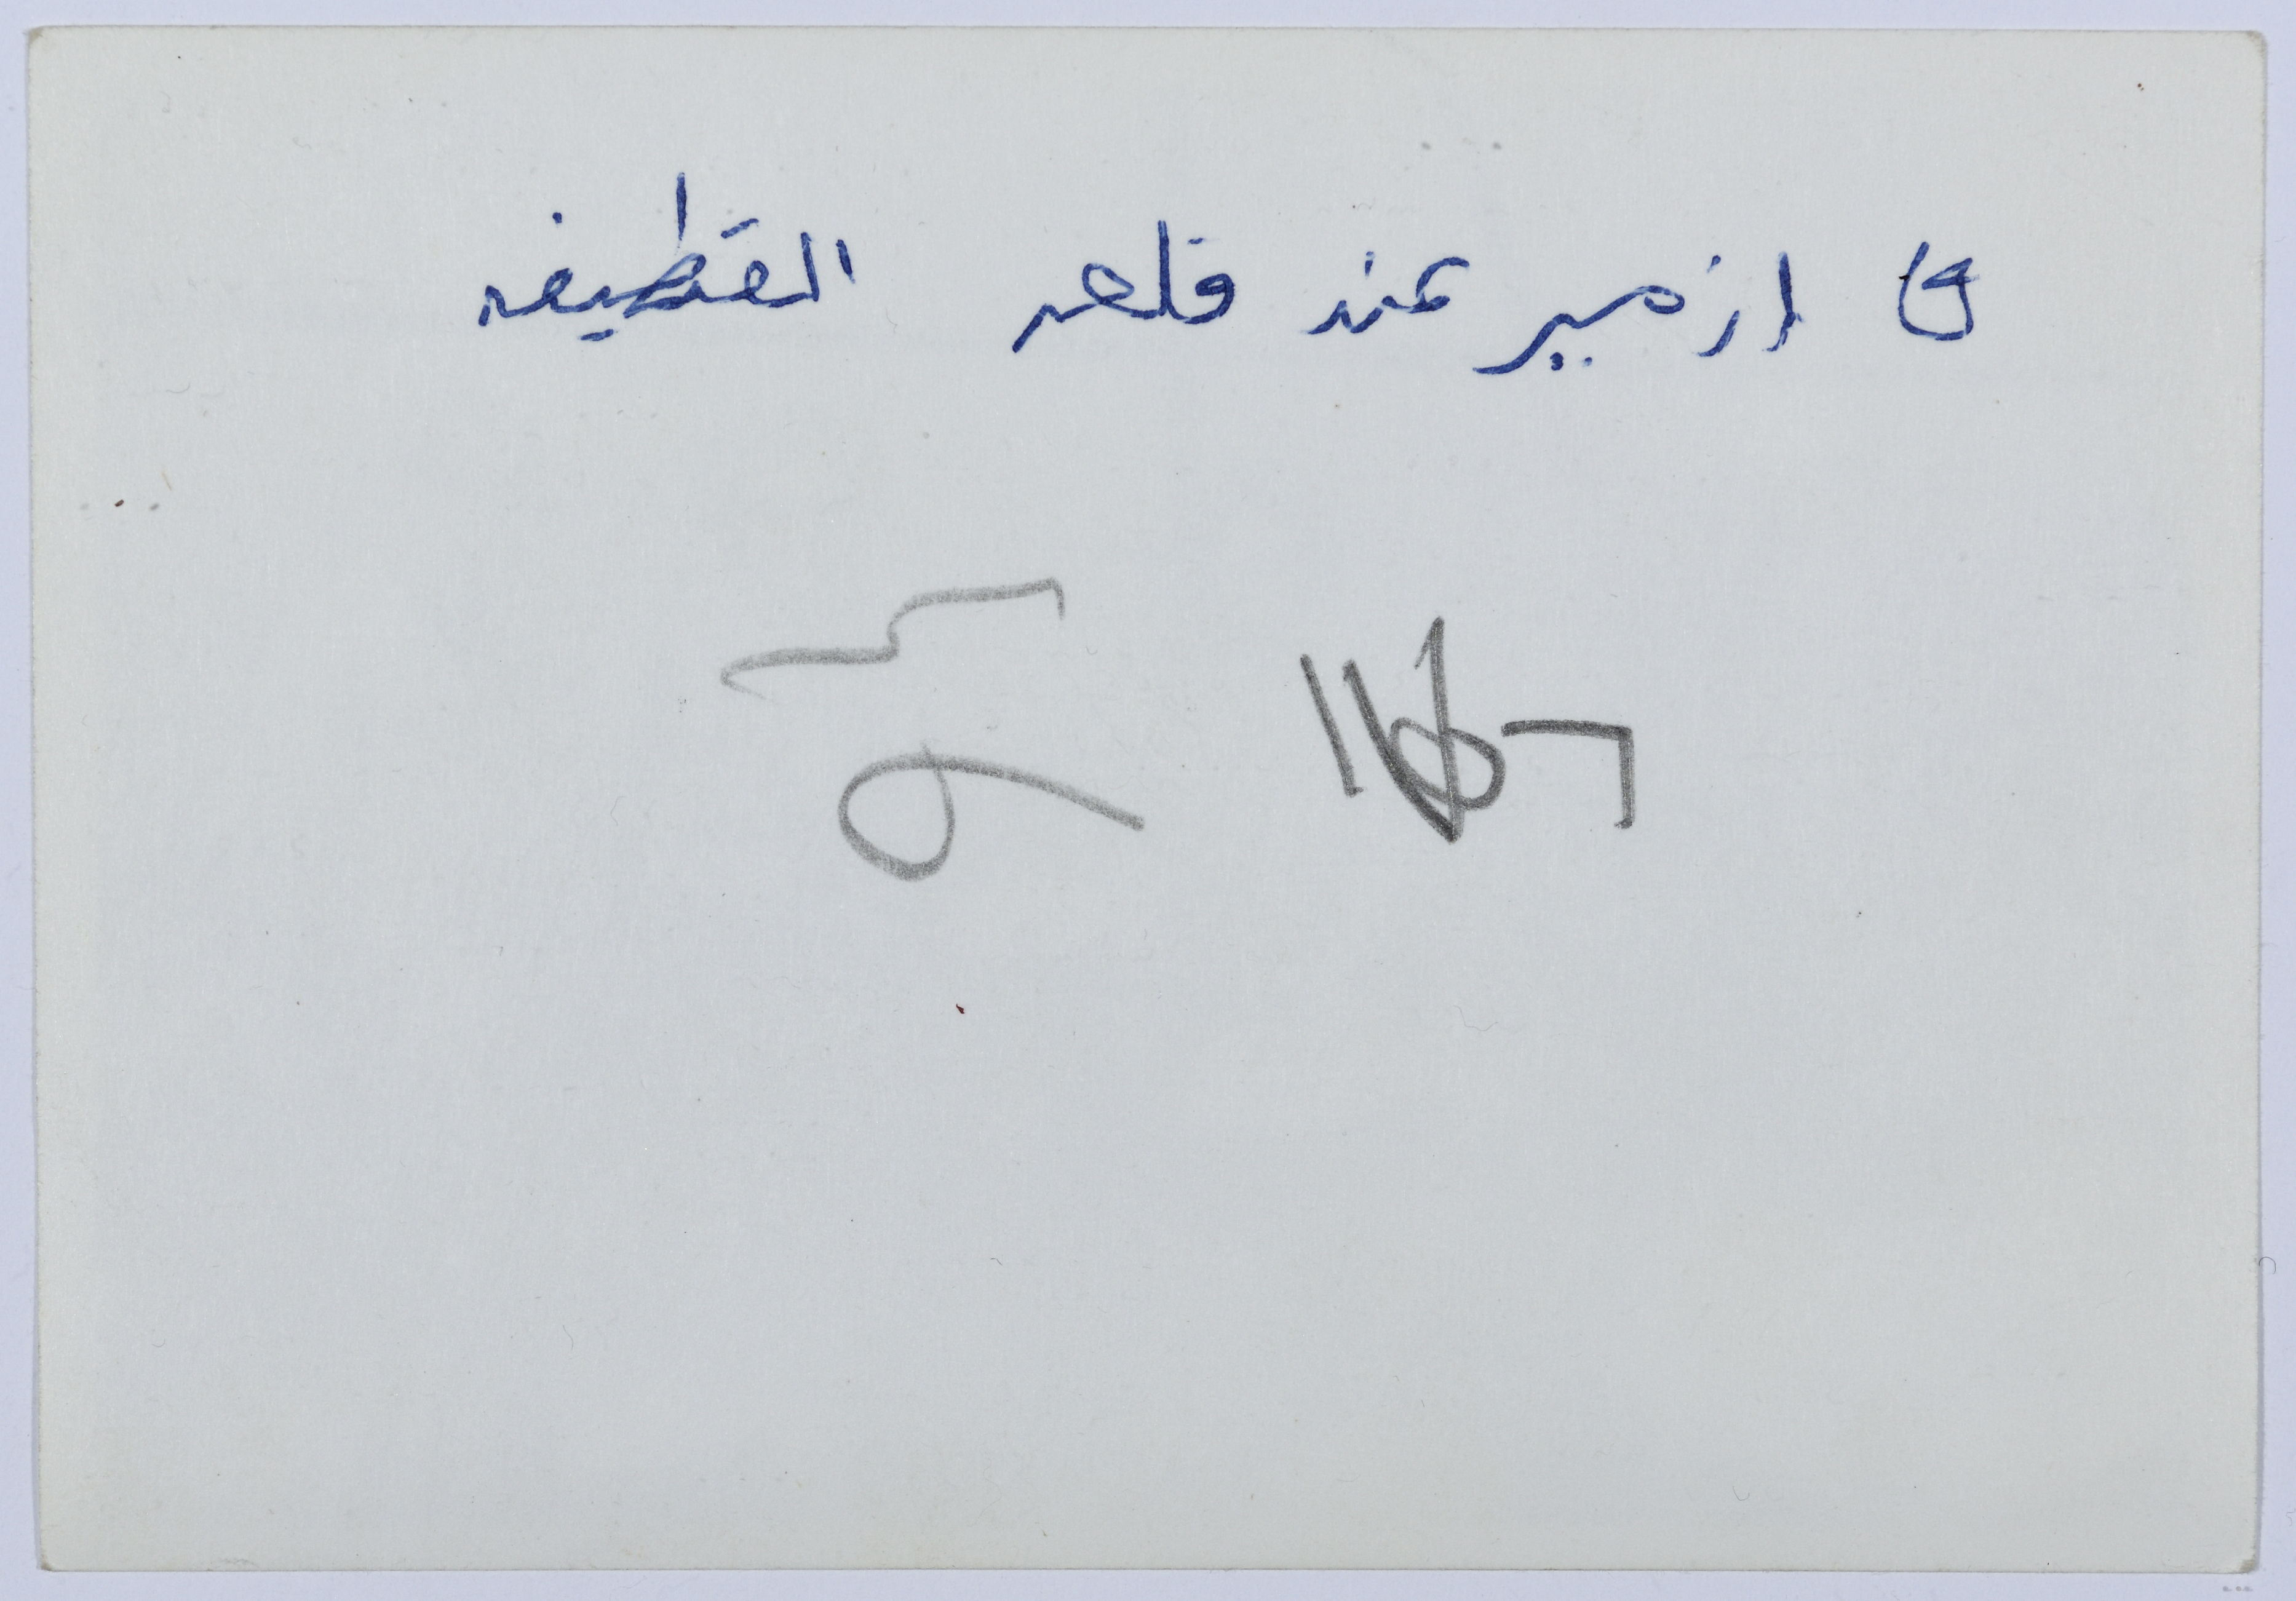 في ازمير عند قلعه القطيفه